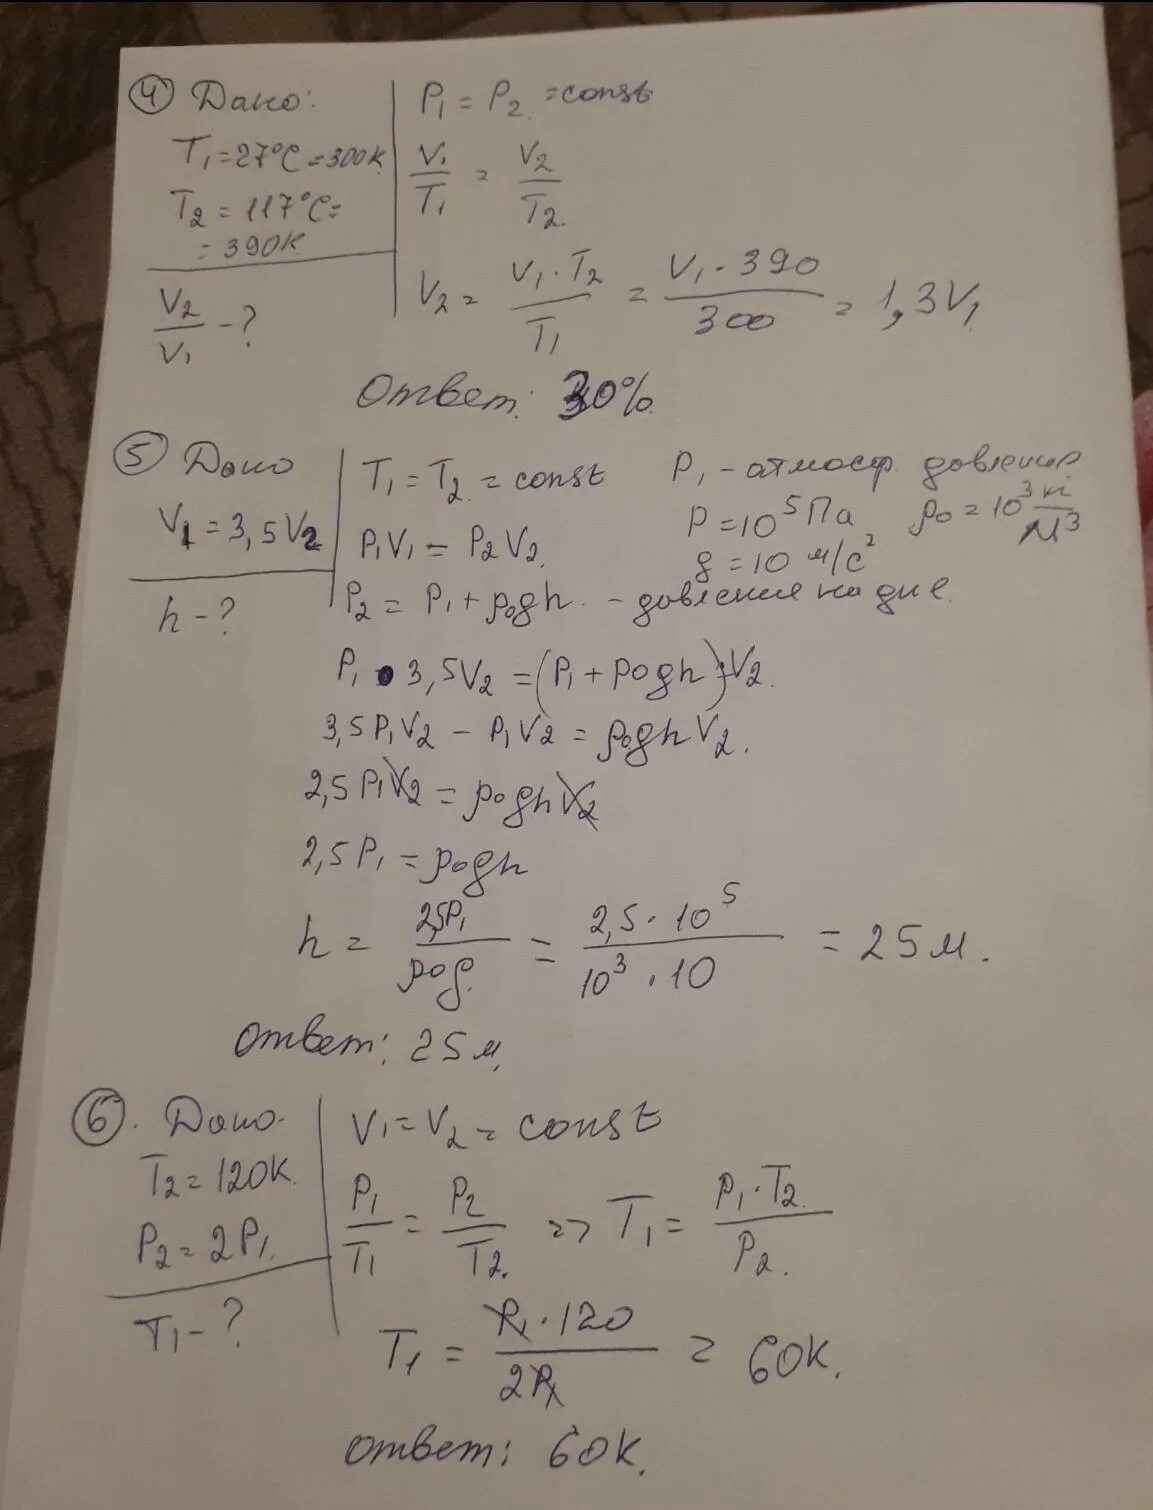 4 Дано:
T₁ = 27°C = 300K
T₂ = 117°C =
= 390K
V₂/V₁ - ?
P₁ = P₂ = const
V₁/T₁ = V₂/T₂.
V₂ = V₁ · T₂/T₁ = V₁ · 390/300 = 1,3V₁
Ответ: 30%.
5 Дано
V₁ = 3,5V₂
h - ?
T₁ = T₂ = const
P₁ - атмосф. давление
P = 10⁵ Па ρ₀ = 10³ кг/м³
g = 10 м/с²
P₁V₁ = P₂V₂.
P₂ = P₁ + ρ₀gh. - давление на дне.
P₁ · 3,5V₂ = (P₁ + ρ₀gh) · V₂.
3,5P₁V₂ - P₁V₂ = ρ₀ghV₂.
2,5P₁V₂ = ρ₀ghV₂
2,5P₁ = ρ₀gh
h = 2,5P₁/ρ₀g. = 2,5 · 10⁵/10³ · 10 = 25 м.
Ответ: 25 м.
6. Дано.
T₂ = 120K.
P₂ = 2P₁.
T₁ - ?
V₁ = V₂ = const
P₁/T₁ = P₂/T₂. => T₁ = P₁ · T₂/P₂.
T₁ = P₁ · 120/2P₁ = 60K.
Ответ: 60K.